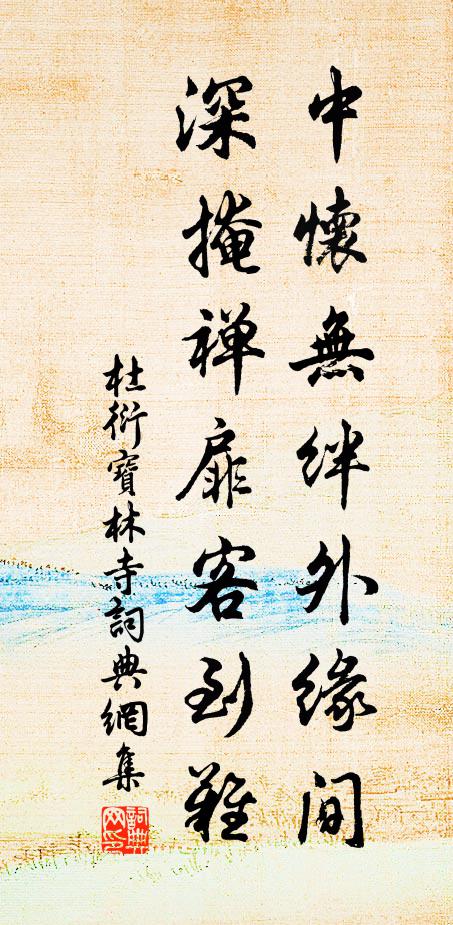 中懷無絆外緣閒
深掩禅扉客到難
杜衍寶林寺詞典網集
詞典网印